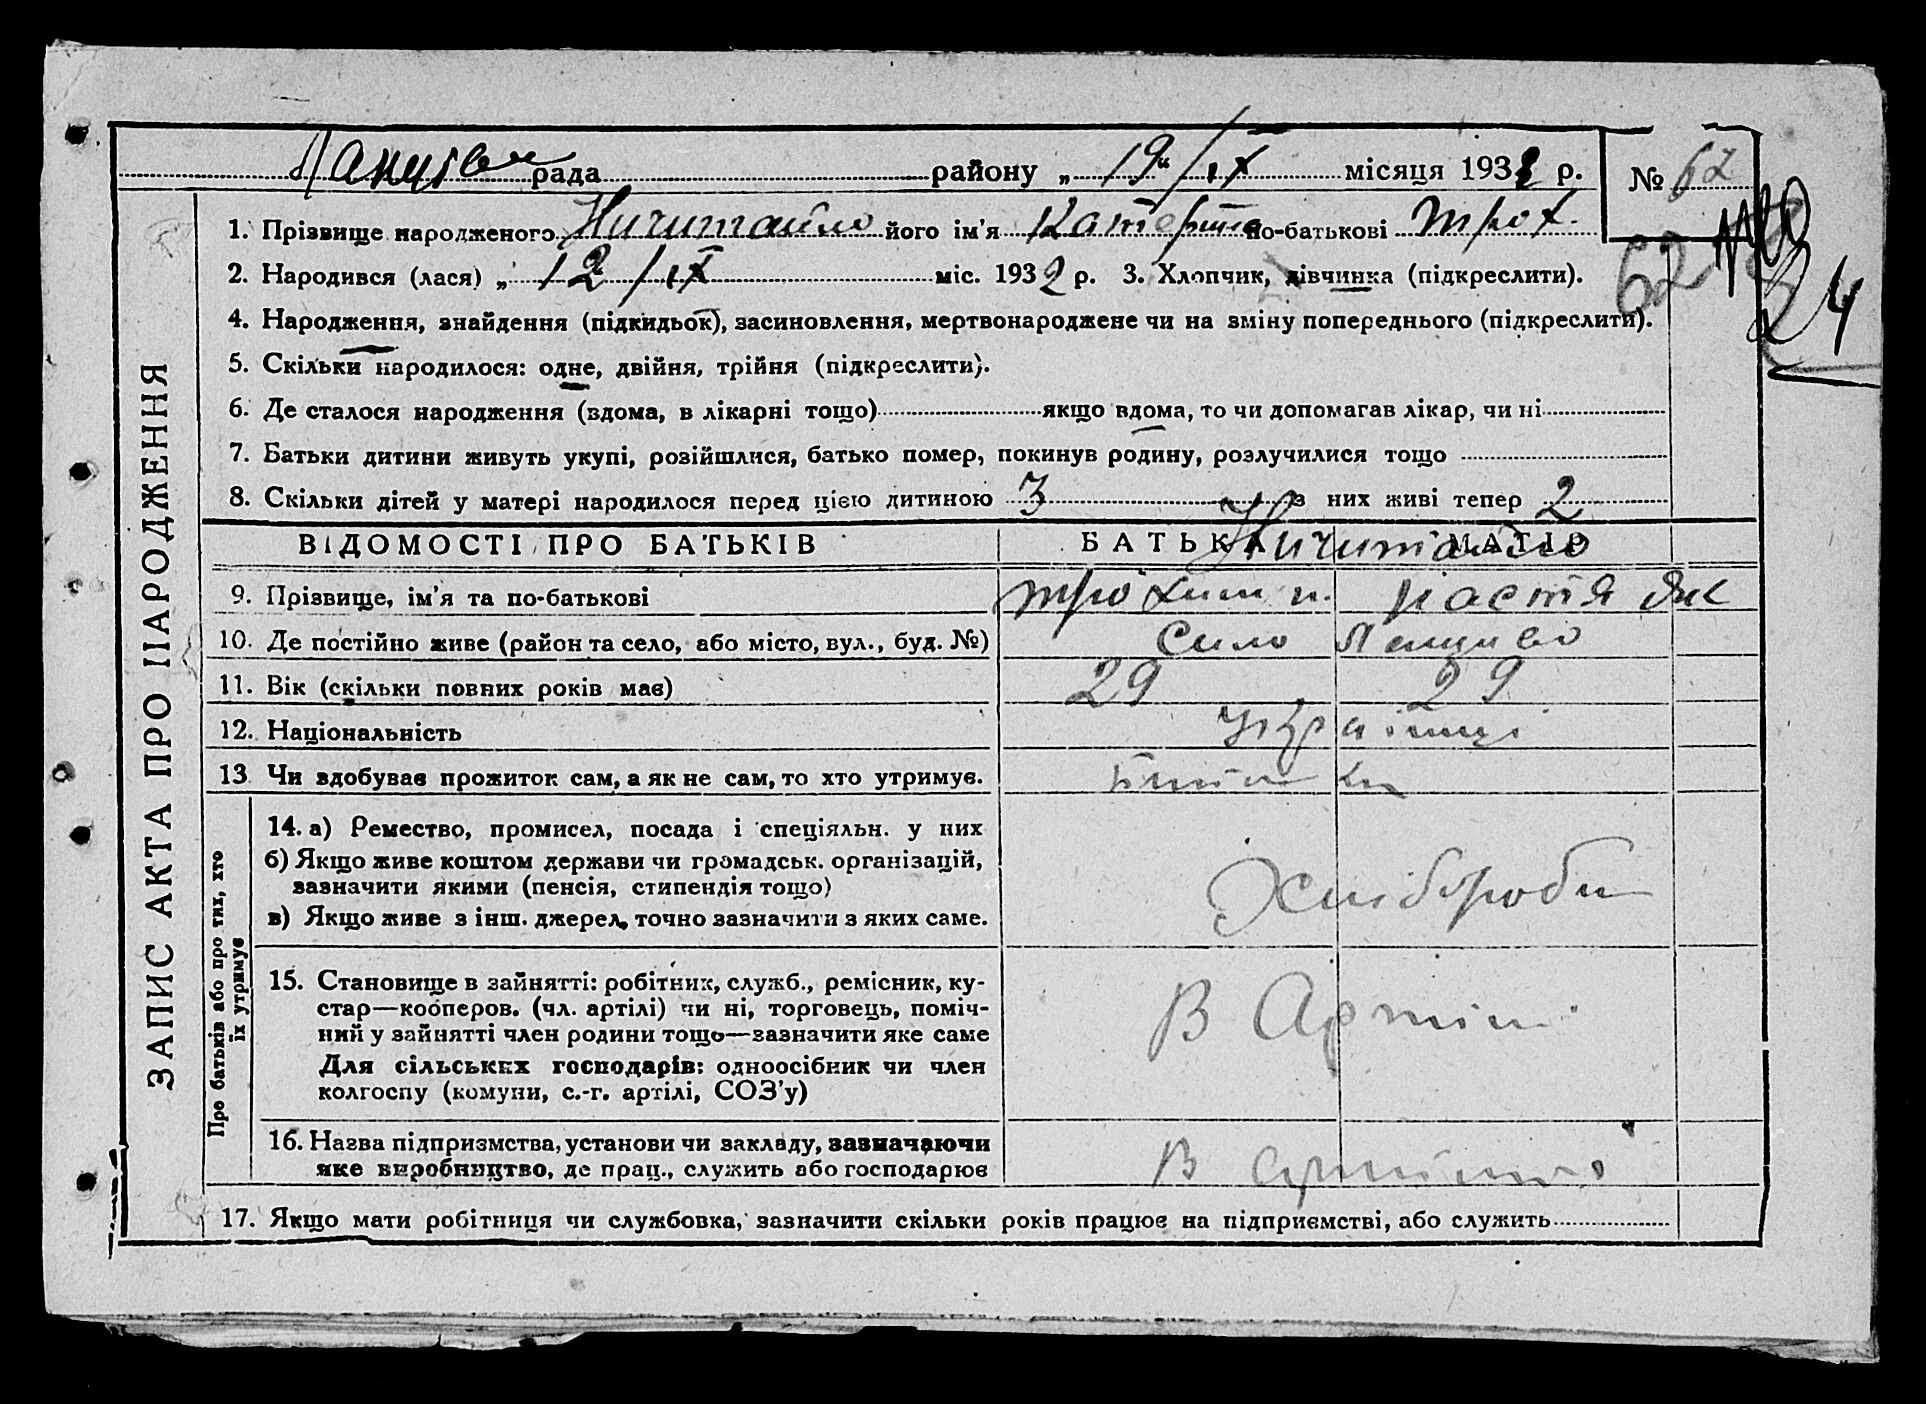 рада района „19“/ІХ місяця 1932 р. № 62
1. Прізвище народженого Ничитайло його ім'я Катерина по-батькові Трох.
2. Народився (лася) „12/ІХ міс. 1932 р. 3. Хлопчик, дівчинка (підкреслити).
62
24
4. Народження, знайдення (підкидьок), засиновлення, мертвонароджене чи на зміну попереднього (підкреслити).
5. Скільки народилося: одне, двійня, трійня (підкреслити).
6. Де сталося народження (вдома, в лікарні тощо) якщо вдома, то чи допомагав лікар, чи ні
7. Батьки дитини живуть укупі, розійшлися, батько помер, покинув родину, розлучилися тощо
8. Скільки дітей у матері народилося перед цією дитиною 3 з них живі тепер 2
ЗАПИС АКТА ПРО НАРОДЖЕННЯ
ВІДОМОСТІ ПРО БАТЬКІВ БАТЬКА МАТІР
Ничитайло
9. Прізвище, ім'я та по-батькові Трохим и. Настя Як
10. Де постійно живе (район та село, або місто, вул., буд. №) Село
11. Вік (скільки повних років має) 29 29
12. Національність Українці
13. Чи здобував прожиток сам, а як не сам, то хто утримує.
Про батьків або про тих, хто їх утримує
14. а) Ремество, промисел, посада і спеціяльн. у них
б) Якщо живе коштом держави чи громадськ. організацій,
зазначити якими (пенсія, стипендія тощо)
в) Якщо живе з інш. джерел, точно зазначити з яких саме.
Хліброби
15. Становище в зайнятті: робітник, служб., ремісник, ку-
стар—кооперов. (чл. артілі) чи ні, торговець, поміч-
ний у зайнятті член родини тощо—зазначити яке саме
Для сільських господарів: одноосібник чи член
колгоспу (комуни, с.-г. артілі, СОЗ'у)
В Артілі
16. Назва підприємства, установи чи закладу, зазначаючи
яке виробництво, де прац., служить або господарює
В
17. Якщо мати робітниця чи службовка, зазначити скільки років працює на підприємстві, або служить